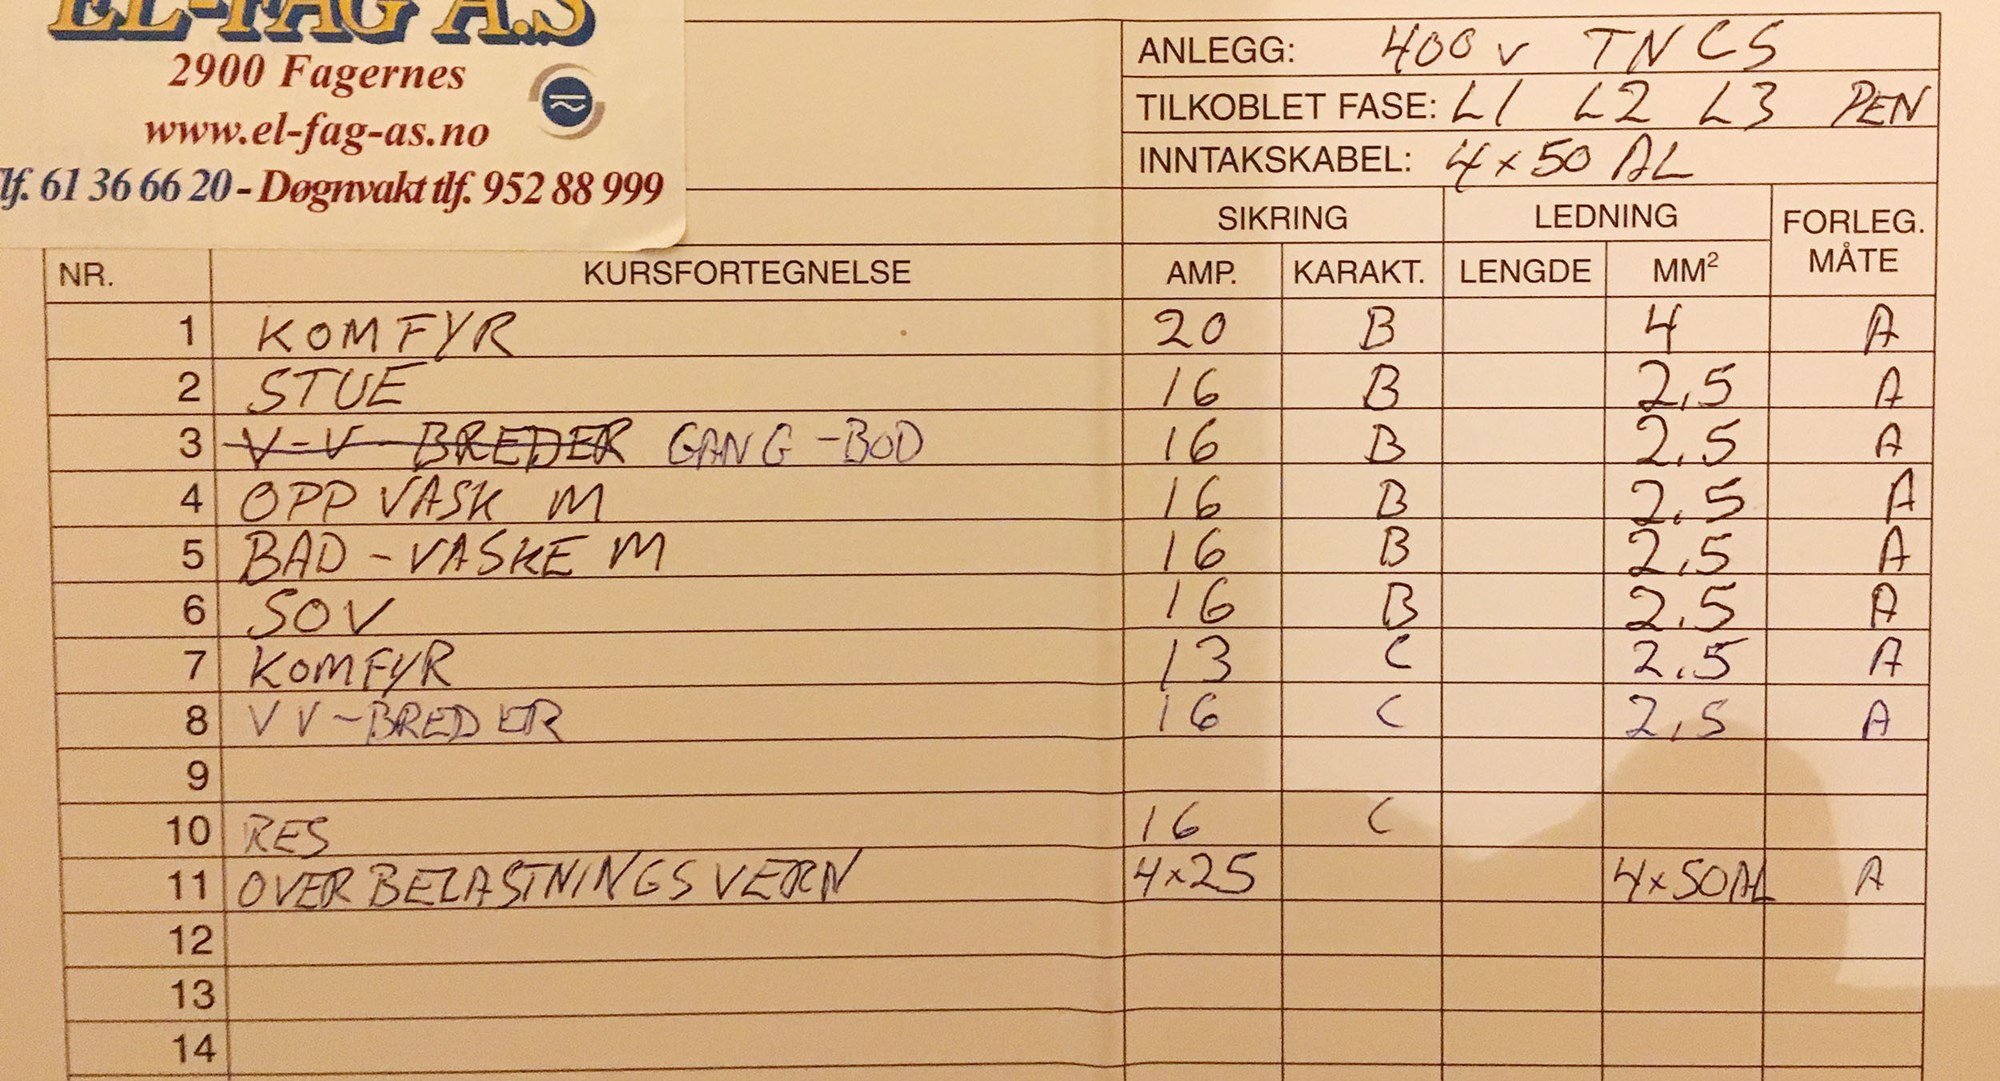 EL-FAG A.S
2900 Fagernes
www.el-fag-as.no
Tlf. 61 36 66 20 - Døgnvakt tlf. 952 88 999
ANLEGG: 400 V TNCS
TILKOBLET FASE: L1 L2 L3 PEN
INNTAKSKABEL: 4x50 AL
SIKRING LEDNING FORLEG. MÅTE
NR. KURSFORTEGNELSE AMP. KARAKT. LENGDE MM²
1 KOMFYR 20 B 4 A
2 STUE 16 B 2,5 A
3 V-V-BREDER GANG-BOD 16 B 2,5 A
4 OPPVASK M 16 B 2,5 A
5 BAD-VASKE M 16 B 2,5 A
6 SOV 16 B 2,5 A
7 KOMFYR 13 C 2,5 A
8 VV-BREDER 16 C 2,5 A
9
10 RES 16 C
11 OVERBELASTNINGSVERN 4x25 4x50AL A
12
13
14